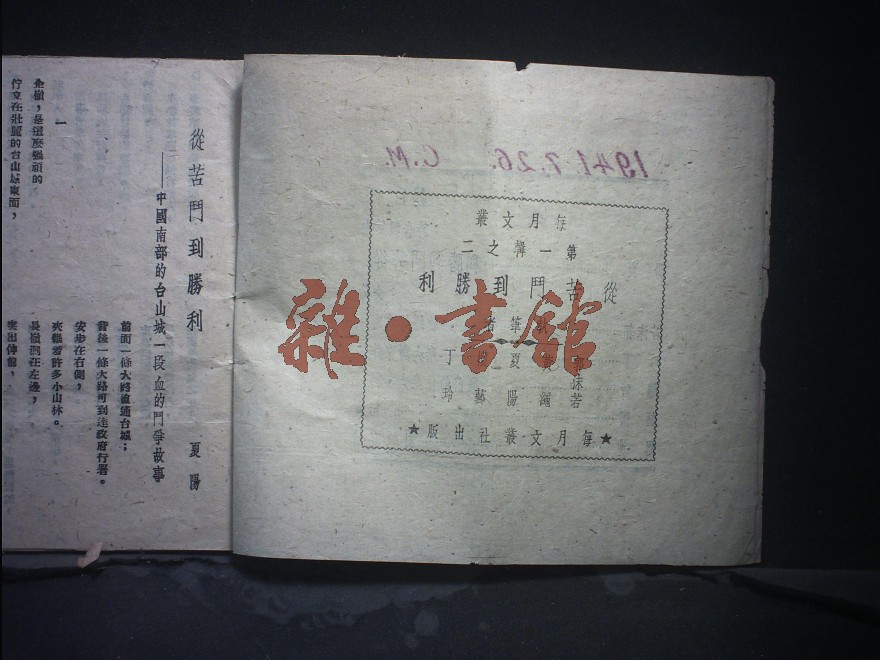 1941.7.26. C.M.
每月文叢
第一輯之二
從苦鬥到勝利
郭沫若
夏陽
丁玲
★每月文叢社出版★
雜●書館
從苦鬥到勝利
夏陽
——中國南部的台山城一段血的鬥爭故事
一
是這麼強頑的
佇立在壯麗的台山城東面，
前面一條大路直通台城；
背後一條大路可到達政府行署。
安步在右側，
夾雜着許多小山林。
長嶺洞在左邊，
突出伸前，